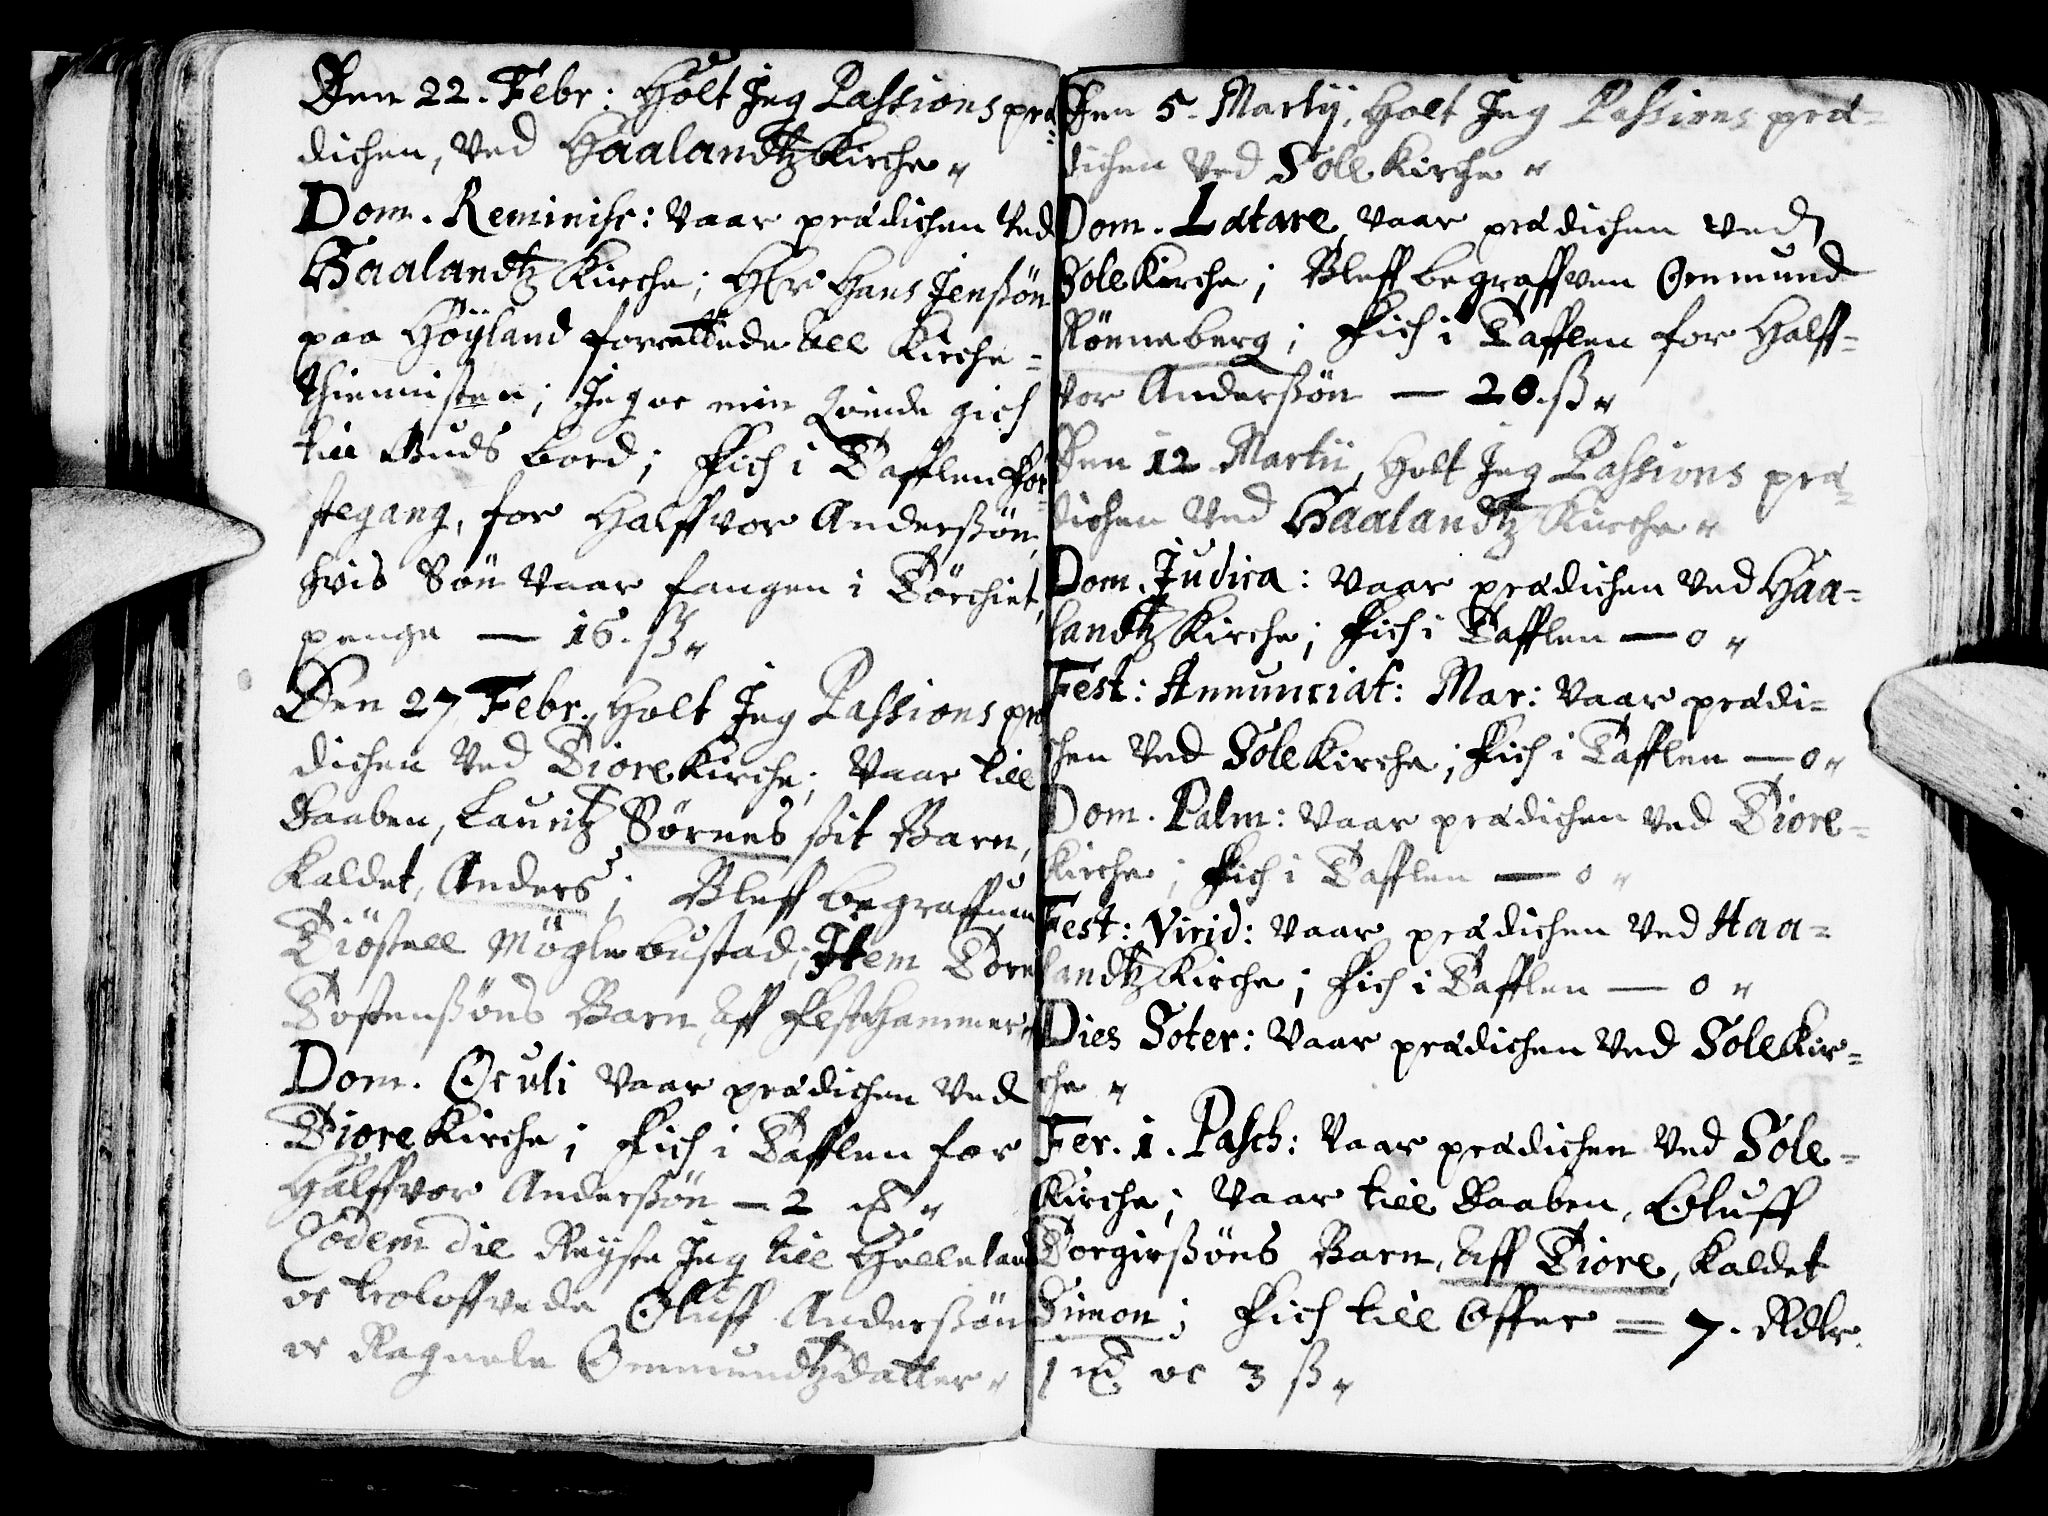 Den 22. Febr: Holt Jeg Passions præ-
dichen, Ved Haalandtz Kirche
Dom. Reminisc: Vaar prædichen Ved
Haalandtz Kirche; Hr Hans Jenßøn
paa Höyland forrettede all Kirche-
thiennisten; Jeg oc min Qvinde gich
till Guds bord; Fich i Tafflen før-
stegang, for Halffvor Anderßøn,
hvis Søn Vaar fangen i Törchiet,
penge — 16. ß
Den 27 Febr. Holt Jeg Passions præ
dichen Ved Tiore Kirche; Vaar till
Daaben, Lauritz Sørnes sit Barn,
Kaldet, Anders; Bleff begraffuen
Tiöstell Møglebustad; Item Tore
Tostenßøns Barn Aff Hammer
Dom. Oculi Vaar prædichen Ved
Tiore Kirche; Fich i Tafflen for
Halffvor Anderßøn — 2 mҟ
Eodem die Reyste Jeg till Helleland
oc troloffvede Oluff Anderßøn
oc Ragnele Ommundtzdatter
Den 5. Martij, Holt Jeg Passions præ-
dichen Ved Sole Kirche
Dom. Lætare, Vaar prædichen Ved
Sole Kirche; Bleff begraffven Ommund
Rønneberg; Fich i Tafflen for Halff-
vor Anderßøn — 20. ß
Den 12 Martii, Holt Jeg Passions præ-
dichen Ved Haalandtz Kirche
Dom. Judica: Vaar prædichen Ved Haa-
landtz Kirche; Fich i Tafflen — 0
Fest: Annunciat: Mar: Vaar prædi-
chen Ved Sole Kirche; Fich i Tafflen — 0
Dom. Palm: Vaar prædichen Ved Tiore-
Kirche; Fich i Tafflen — 0
Fest: Virid: Vaar prædichen Ved Haa-
landtz Kirche; Fich i Tafflen — 0
Dies Soter: Vaar prædichen Ved Sole Kir-
che
Fer. 1. Pasch: Vaar prædichen Ved Sole-
Kirche; Vaar till Daaben, Oluff
Torgirßøns Barn, Aff Tiore, Kaldet
Simon; Fich till Offer = 7. Rdlr.
1 mҟ oc 3 ß